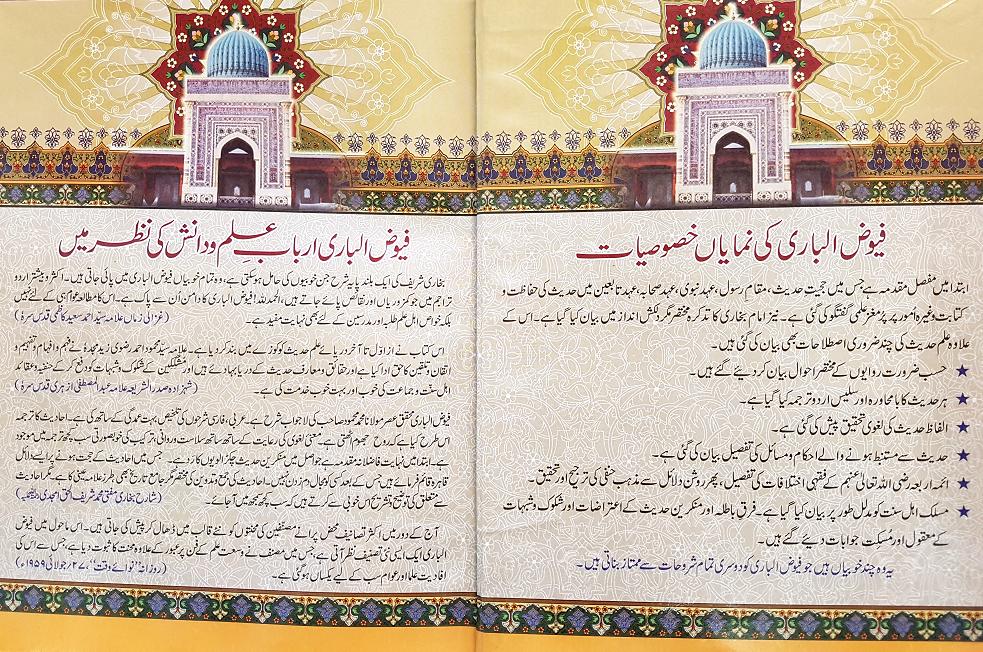 فیوض الباری کی نمایاں خصوصیات
ابتدا میں مفصل مقدمہ ہے جس میں حجیت حدیث، مقام رسول، عہد نبوی، عہد صحابہ، عہد تابعین میں حدیث کی حفاظت و
کتابت وغیرہ امور پر پُر مغز علمی گفتگو کی گئی ہے۔ نیز امام بخاری کا تذکرہ مختصر مگر دلکش انداز میں بیان کیا گیا ہے۔ اس کے
علاوہ علم حدیث کی چند ضروری اصطلاحات بھی بیان کی گئی ہیں۔
★ حسب ضرورت راویوں کے مختصر احوال بیان کر دیئے گئے ہیں۔
★ ہر حدیث کا بامحاورہ اور سلیس اردو ترجمہ کیا گیا ہے۔
★ الفاظ حدیث کی لغوی تحقیق پیش کی گئی ہے۔
★ حدیث سے مستنبط ہونے والے احکام و مسائل کی تفصیل بیان کی گئی ہے۔
★ ائمہ اربعہ رضی اللہ تعالیٰ عنہم کے فقہی اختلافات کی تفصیل، پھر روشن دلائل سے مذہب حنفی کی ترجیح اور تحقیق۔
★ مسلک اہل سنت کو مدلل طور پر بیان کیا گیا ہے۔ فرق باطلہ اور منکرین حدیث کے اعتراضات اور شکوک و شبہات
کے معقول اور مُسکت جوابات دیئے گئے ہیں۔
یہ وہ چند خوبیاں ہیں جو فیوض الباری کو دوسری تمام شروحات سے ممتاز بناتی ہیں۔
فیوض الباری ارباب علم و دانش کی نظر میں
بخاری شریف کی ایک بلند پایہ شرح جن خوبیوں کی حامل ہو سکتی ہے، وہ تمام خوبیاں فیوض الباری میں پائی جاتی ہیں۔ اکثر و بیشتر اردو
تراجم میں جو کمزوریاں اور نقائص پائے جاتے ہیں، الحمد للہ! فیوض الباری کا دامن اُن سے پاک ہے۔ اس کا مطالعہ عوام ہی کے لئے نہیں
بلکہ خواص اہل علم طلبہ اور مدرسین کے لئے بھی نہایت مفید ہے۔ (غزالی زماں علامہ سید احمد سعید کاظمی قدس سرہٗ)
اس کتاب نے از اوّل تا آخر دریائے علم حدیث کو کوزے میں بند کر دیا ہے۔ علامہ سید محمود احمد رضوی زید مجدہٗ نے فہم و افہام و تفہیم و
اتقان و تلقین کا حق ادا کیا ہے اور حقائق و معارف حدیث کے دریا بہا دئیے ہیں اور مشککین کے شکوک و شبہات کو دفع کر کے حنفیہ و عقائد
اہل سنت و جماعت کی خوب اور بہت خوب خدمت کی ہے۔ (شہزادہ صدر الشریعہ علامہ عبدالمصطفیٰ ازہری قدس سرہٗ)
فیوض الباری محقق عصر مولانا محمد محمود صاحب کی لاجواب شرح ہے۔ عربی، فارسی شرحوں کی تلخیص بہت عمدگی کے ساتھ کی ہے۔ احادیث کا ترجمہ
اس طرح کیا ہے کہ روح جھوم اٹھتی ہے۔ معنی لغوی کی رعایت کے ساتھ ساتھ سلاست و روانی، ترکیب کی خوبصورتی سب کچھ ترجمہ میں موجود
ہے۔ ابتدا میں نہایت فاضلانہ مقدمہ ہے جو اصل میں منکرین حدیث چکڑالویوں کا رد ہے۔ جس میں احادیث کے حجت ہونے پر ایسے دلائل
قاہرہ قائم فرمائے ہیں جس کے بعد کسی کو مجال دم زدن نہیں۔ احادیث کی جمع و تدوین کی مختصر مگر جامع تاریخ بھی ہے۔ طرز علامہ عینی کا ہے۔ مگر احادیث
سے متعلق کی توضیح و تشریح اس خوبی سے کرتے ہیں کہ سب کچھ سمجھ میں آ جائے۔ (شارح بخاری مفتی محمد شریف الحق امجدی)
آج کے دور میں اکثر تصانیف محض پرانے مصنفین کی محنتوں کو نئے قالب میں ڈھال کر پیش کی جاتی ہیں۔ اس ماحول میں فیوض
الباری ایک ایسی نئی تصنیف نظر آتی ہے، جس میں مصنف نے وسعت علم کے فن پر عبور کے علاوہ محنت کا ثبوت دیا ہے، جس سے اس کی
افادیت علما اور عوام سب کے لیے یکساں ہو گئی ہے۔ (روزنامہ ”نوائے وقت“، ۲۷ جولائی ۱۹۵۹ء)